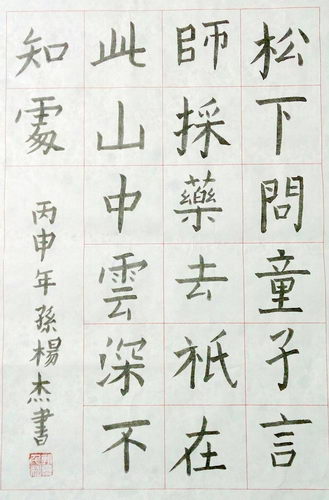 松下問童子言
師採藥去祇在
此山中雲深不
知處
丙申年孫楊杰書